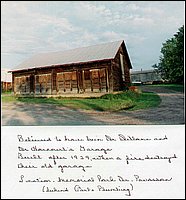 Believed to have been Dr Dillane and
Dr Harcourt's Garage
Built after 1929, when a fire destroyed
their old garage
Location: Memorial Park Dr., Powassan
(behind Piets Plumbing)